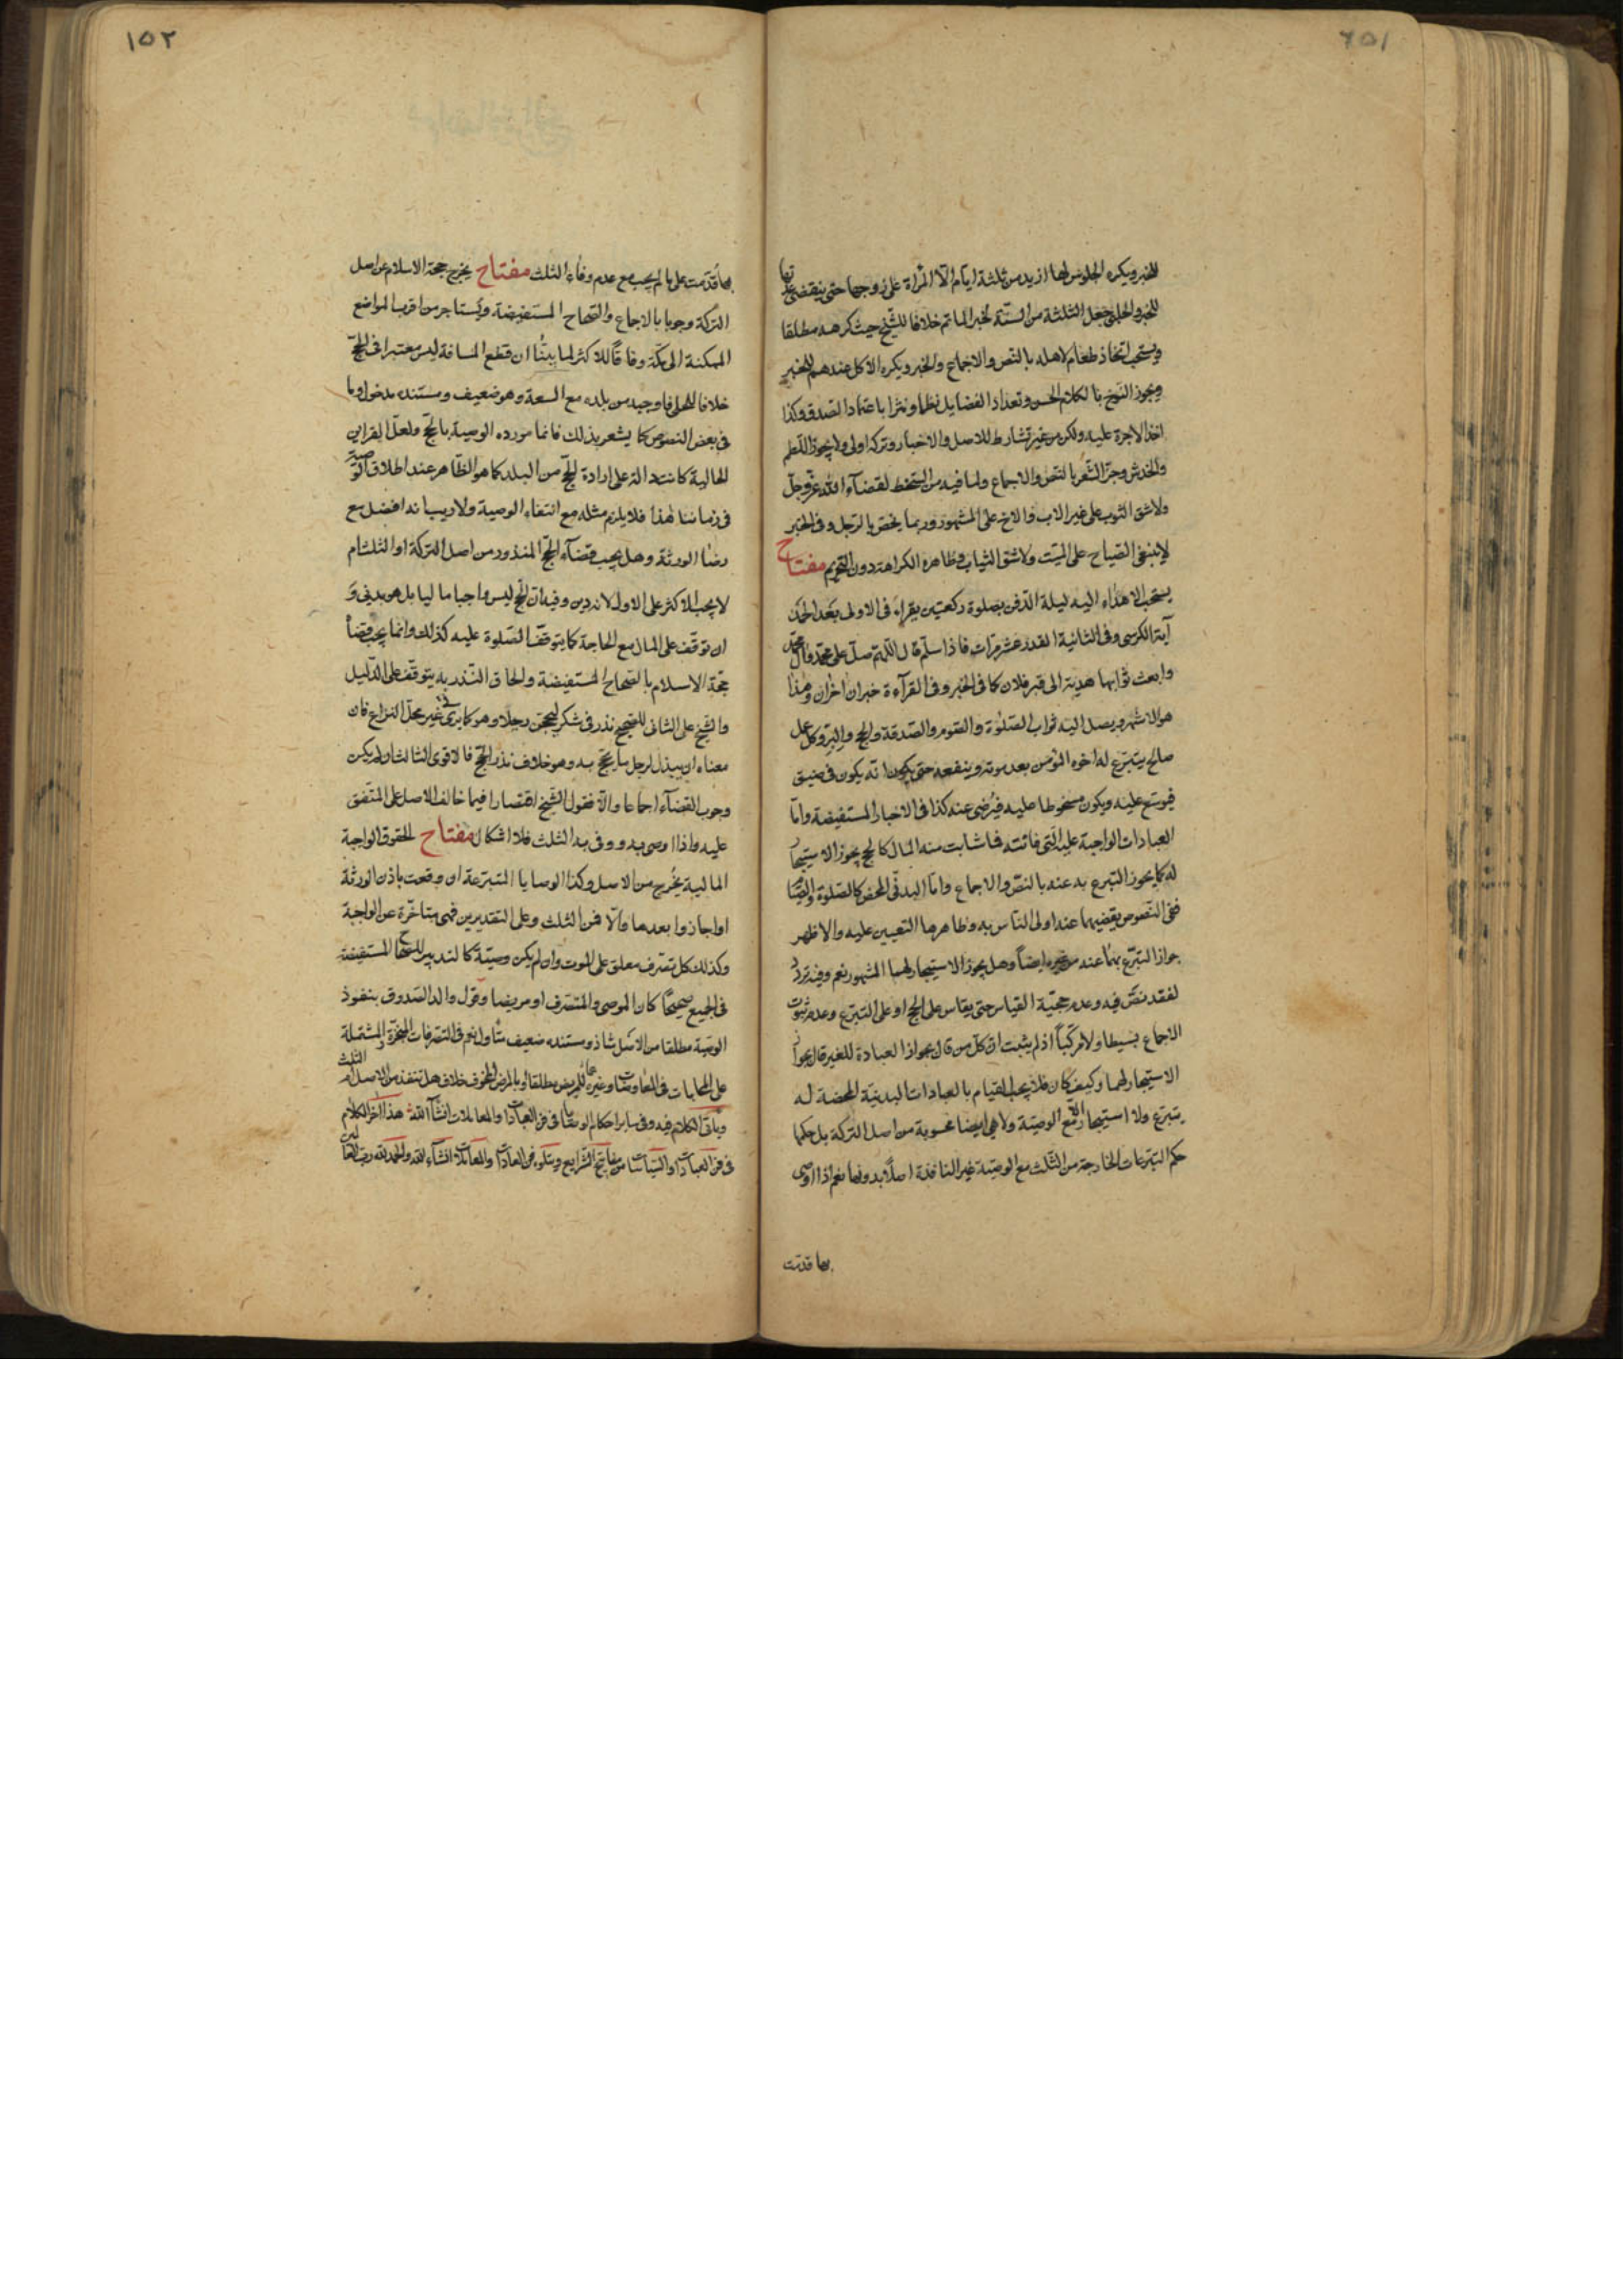 ١٥١
للخبر ويكره الجلوس لها ازيد من ثلثة ايام الا المراة على زوجها حتى ينقضى عدتها
للخبر جعل الثلثة من السنة لخبر الماتم خلافا للشيخ حيث كرهه مطلقا
ويستحب اتخاذ طعام لاهله بالنص والاجماع والخبر ويكره الاكل عندهم للخبر
ويجوز النوح بالكلام الحسن وتعداد الفضايل نظما ونثرا باعتماد الصدق وكذا
اخذ الاجرة عليه ولكن من غير تشارط للاصل والاخبار وتركه اولى ولا يجوز اللطم
والخدش وجز الشعر بالنص والاجماع ولما فيه من السخط لقضآء الله عز وجل
ولا شق الثوب على غير الاب والاخ على المشهور وربما يخص بالرجل وفى الخبر
لا ينبغى الصياح على الميت ولا شق الثياب وظاهره الكراهة دون التحريم مفتاح
يستحب الاهداء اليه ليلة الدفن بصلوة ركعتين يقراء فى الاولى بعد الحمد
آية الكرسى وفى الثانية القدر عشر مرات فاذا سلم قال اللهم صل على محمد وآل محمد
وابعث ثوابها هدية الى قبر فلان كما فى الخبر وفى القرآءة خبران اخران وهذا
هو الاشهر ويصل اليه ثواب الصلوة والصوم والصدقة والحج والبر وكل عمل
صالح يتبرع له اخوه المؤمن بعد موته وينفعه حتى يكون انه يكون فى ضيق
فيوسع عليه ويكون مسخوطا عليه فيرضى عنه كذا فى الاخبار المستفيضة واما
العبادات الواجبة عليه التى فاتته فما شابت منه المال كالحج يجوز الاستيجار
له كما يجوز التبرع به عنه بالنص والاجماع واما البدنى المحض كالصلوة والصيام
ففى النصوص يقضيهما عنه اولى الناس به وظاهرها التعيين عليه والاظهر
جواز التبرع بهما عنه من غيره ايضا وهل يجوز الاستيجار لهما المشهور نعم وفيه تردد
لفقد نص فيه وعدم حجية القياس حتى يقاس على الحج او على التبرع وعدم ثبوت
الاجماع بسيطا ولا مركبا اذ لم يثبت ان كل من قال بجواز العبادة للغير قال بجواز
الاستيجار لهما وكيف كان فلا يجب القيام بالعبادات البدنية المحضة له
بتبرع ولا استيجار الا مع الوصية ولا هى ايضا محسوبة من اصل التركة بل حكمها
حكم التبرعات الخارجة من الثلث مع الوصية غير النافذة اصلا بدونها نعم اذا اوصى
بها قدمت
١٥٢
بها قدمت على ما لم يجب مع عدم وفاء الثلث مفتاح يخرج حجة الاسلام من اصل
التركة وجوبا بالاجماع والصحاح المستفيضة ويستاجر من اقرب المواضع
الممكنة الى مكة وفاقا للاكثر لما بينا ان قطع المسافة ليس معتبرا فى الحج
خلافا للحلى فاوجبه من بلده مع السعة وهو ضعيف ومستنده مدخول وما
فى بعض النصوص كما يشعر بذلك فانما مورده الوصية بالحج ولعل القراين
الحالية كانت دالة على ارادة الحج من البلد كما هو الظاهر عند اطلاق الوصية
فى زماننا هذا فلا يلزم مثله مع انتفاء الوصية ولا ريب انه افضل مع
رضا الورثة وهل يجب قضآء الحج المنذور من اصل التركة او الثلث ام
لا يجب الاكثر على الاول لانه دين وفيه ان الحج ليس واجبا ماليا بل هو بدنى و
ان توقف على المال مع الحاجة كما يتوقف الصلوة عليه كذلك وانما يجب قضآء
حجة الاسلام بالصحاح المستفيضة والحاق النذر به يتوقف على الدليل
والشيخ على الثانى للصحيح نذر فى شكر ليحجن رجلا وهو كما ترى فى غير محل النزاع فان
معناه ان يبذل لرجل ما يحج به وهو خلاف نذر الحج فالاقوى الثالث ان لم يكن
وجوب القضآء اجماعا والا فقول الشيخ اقتصارا فيما خالف الاصل على المتفق
عليه واذا اوصى به ووفى به الثلث فلا اشكال مفتاح الحقوق الواجبة
المالية يخرج من الاصل وكذا الوصايا المتبرعة ان وقعت باذن الورثة
او اجازوا بعدها والا فمن الثلث وعلى التقديرين فهى متاخرة عن الواجبة
وكذلك كل تصرف معلق على الموت وان لم يكن وصية كالتدبير للصحاح المستفيضة
فى الجميع صحيحا كان الموصى والمتصرف او مريضا وقول والد الصدوق بنفوذ
الوصية مطلقا من الاصل شاذ ومستنده ضعيف متاول نعم فى التصرفات المنجزة المشتملة
على المحابات فى المعاوضات وغيرها للمريض مطلقا او بالمرض المخوف خلاف هل تنفذ من الاصل ام الثلث
وياتى الكلام فيه وفى ساير احكام الوصايا فى فن العادات والمعاملات انشآ الله هذا آخر الكلام
فى فن العبادات والسياسات من مفاتيح الشرايع ويتلوه فن العادات والمعاملات انشآء الله والحمد لله رب العالمين